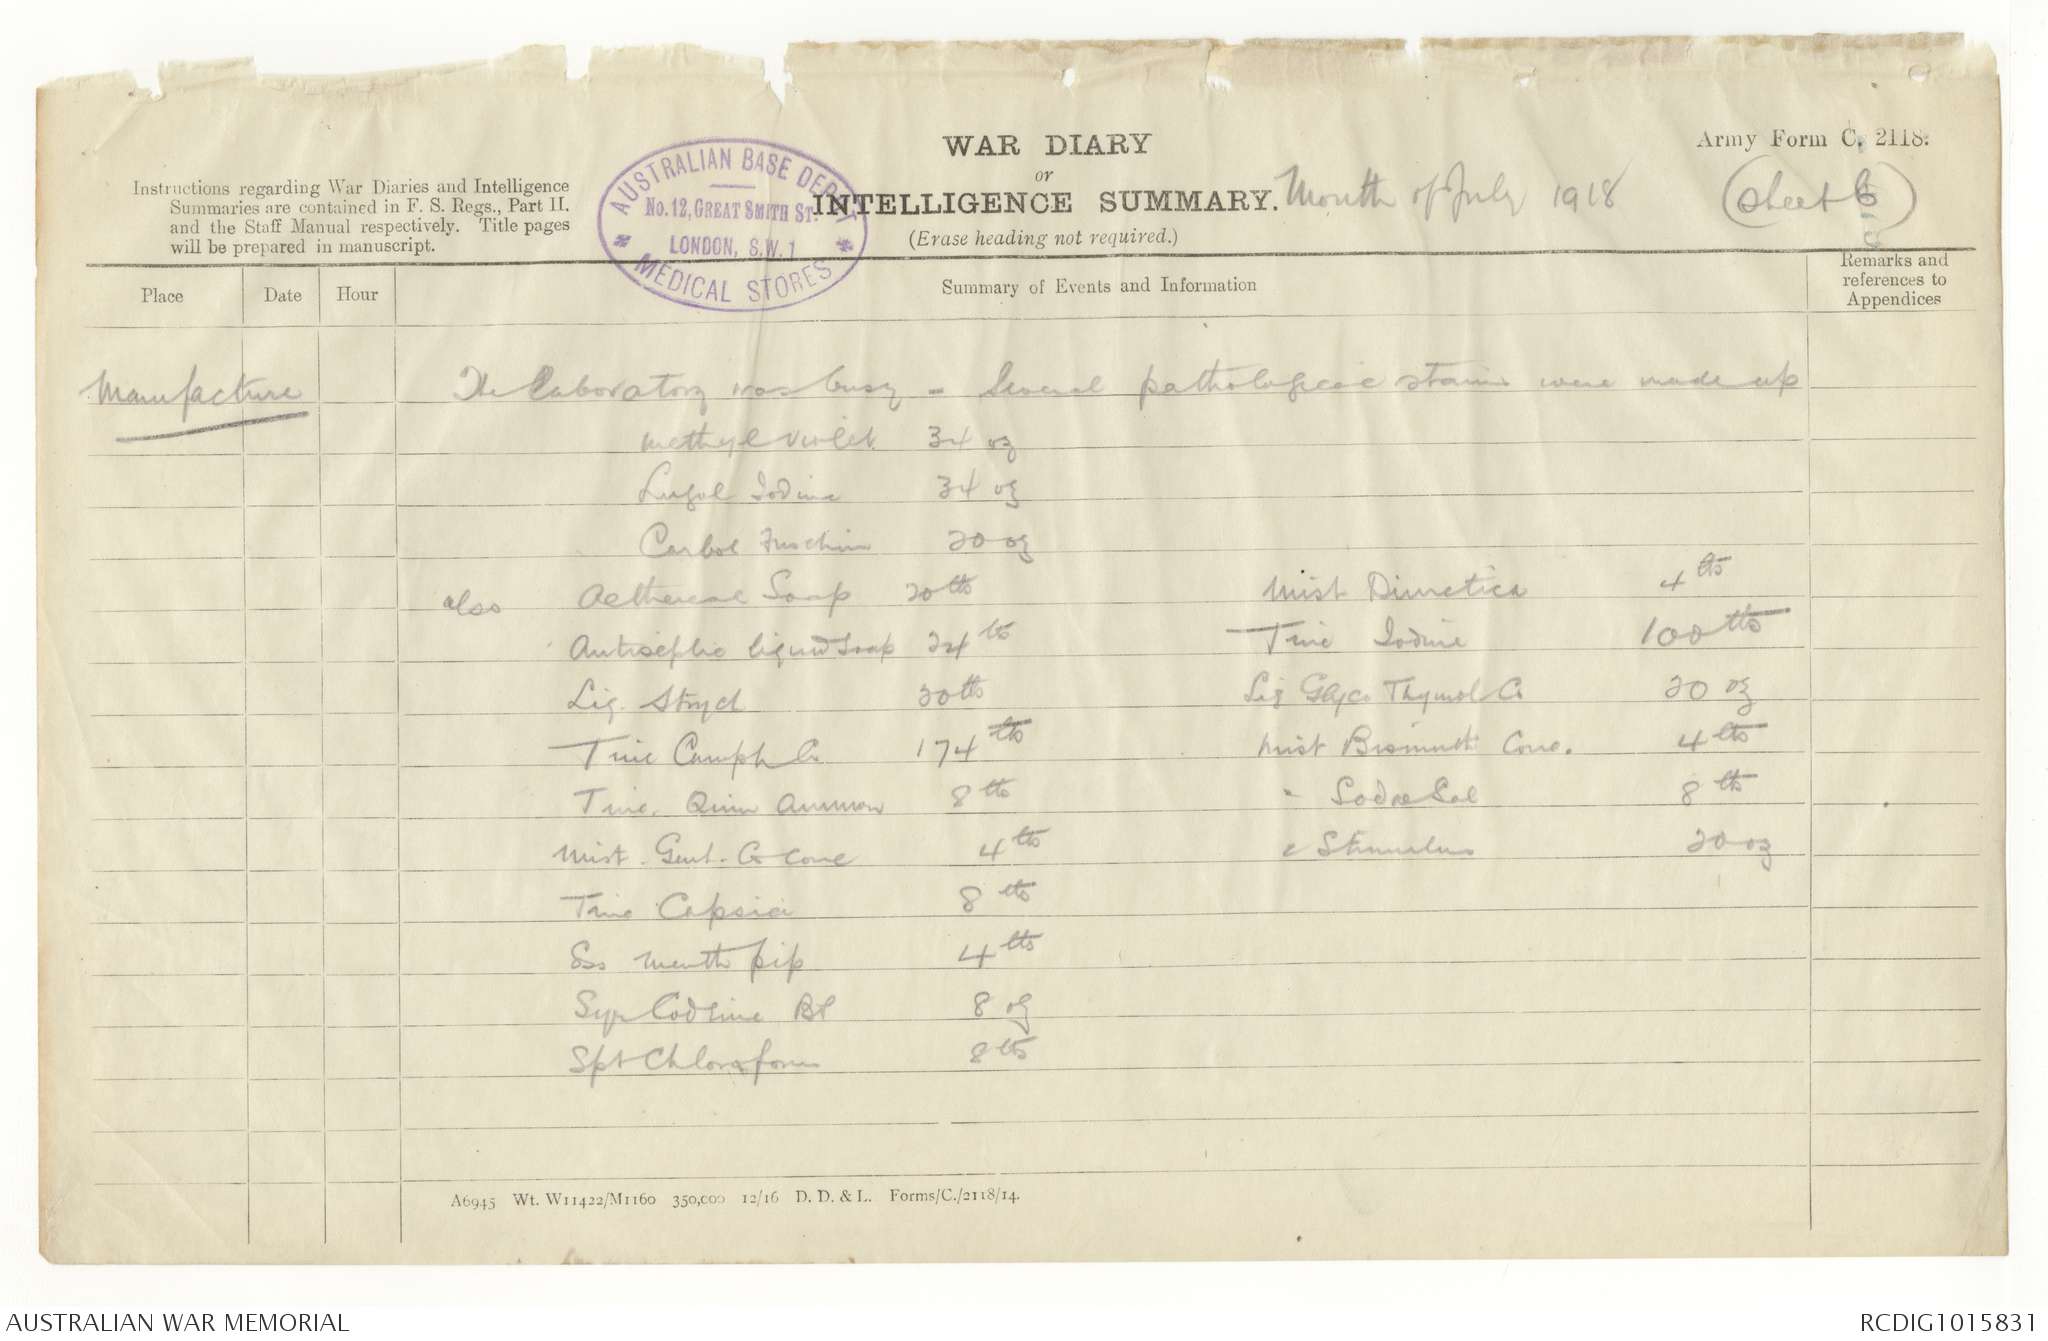 WAR DIARY
or
INTELLIGENCE SUMMARY.
(Erase heading not required.)
Month of July 1918
Army Form C. 2118.
(Sheet 6)
Instructions regarding War Diaries and Intelligence
Summaries are contained in F. S. Regs., Part II.
and the Staff Manual respectively. Title pages
will be prepared in manuscript.
AUSTRALIAN BASE DEPOT
No. 12, GREAT SMITH ST.
LONDON, S.W.1
* MEDICAL STORES *
Place
Date
Hour
Summary of Events and Information
Remarks and
references to
Appendices
Manufacture
The Laboratory was busy - Several pathological stains were made up
Methyl Violet 34 oz
Lugol Iodine 34 oz
Carbol Fuschin 20 oz
also Aethereal Soap 20 lbs Mist Diuretica 4 lbs
Antiseptic liquid Soap 24 lbs Tinc Iodine 100 lbs
Liq. Strych 20 lbs Liq Glyco Thymol Co 20 oz
Tinc Camph Co 174 lbs Mist Bismuth Conc. 4 lbs
Tinc. Quin Ammon 8 lbs " Sodae Sal 8 lbs
Mist. Gent. Co Conc 4 lbs " Stimulus 20 oz
Tinc Capsici 8 lbs
Ess Menth pip 4 lbs
Syr Codeine 8 oz
Spt Chloroform 8 lbs
A6945 Wt. W11422/M1160 350,000 12/16 D. D. & L. Forms/C./2118/14.
AUSTRALIAN WAR MEMORIAL
RCDIG1015831